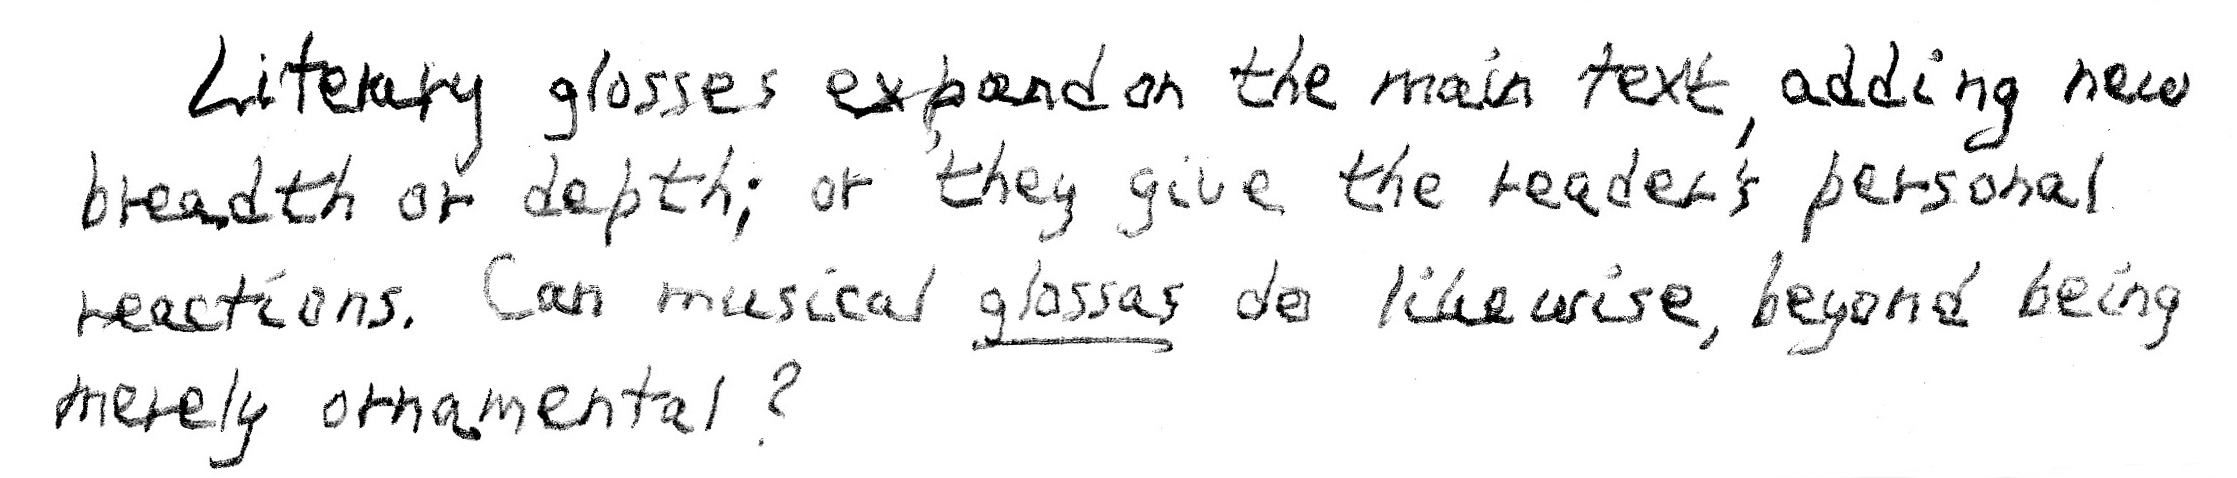 Literary glosses expand on the main text, adding new
breadth or depth; or they give the reader's personal
reactions. Can musical glossas do likewise, beyond being
merely ornamental?